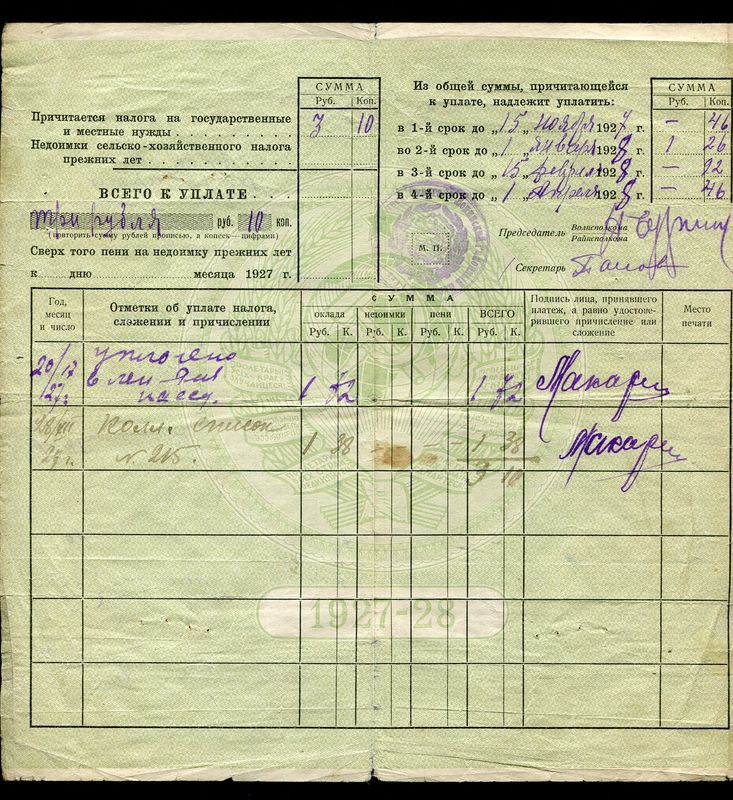 СУММА
Руб. Коп.
Причитается налога на государственные
и местные нужды . . . . . . . . . . . 3 10
Недоимки сельско-хозяйственного налога
прежних лет . . . . . . . . . . . . . .
ВСЕГО К УПЛАТЕ . . .
три рубля руб. 10 коп.
(повторить сумму рублей прописью, а копеек — цифрами)
Сверх того пени на недоимку прежних лет
к . . . дню . . . . . . . . . месяца 1927 г.
Из общей суммы, причитающейся
к уплате, надлежит уплатить:
СУММА
Руб. Коп.
в 1-й срок до „15„ ноября 1927 г. — 46
во 2-й срок до „1„ января 1928 г. 1 26
в 3-й срок до „15„ февраля 1928 г. —
в 4-й срок до „1„ апреля 1928 г. — 46
М. П.
Председатель Волисполкома
Райисполкома
Секретарь
Год,
месяц
и число
Отметки об уплате налога,
сложении и причислении
СУММА
оклада недоимки пени ВСЕГО
Руб. К. Руб. К. Руб. К. Руб. К.
Подпись лица, принявшего
платеж, а равно удостове-
рившего причисление или
сложение
Место
печати
20/ уплочено
127г. в
кассу. 1 72 1 72 Макари
список
27 г. N 215. 1 38 — — 1 38 Макари
3 10
1927-28